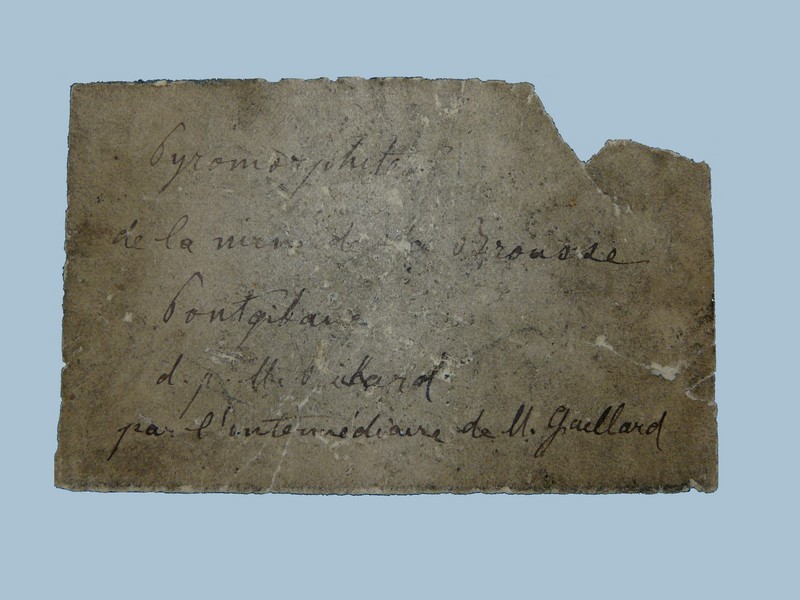 Pyromorphite
de la mine de la Brousse
Pontgibaud
d. p. M.
par l'intermédiaire de M. Gaillard